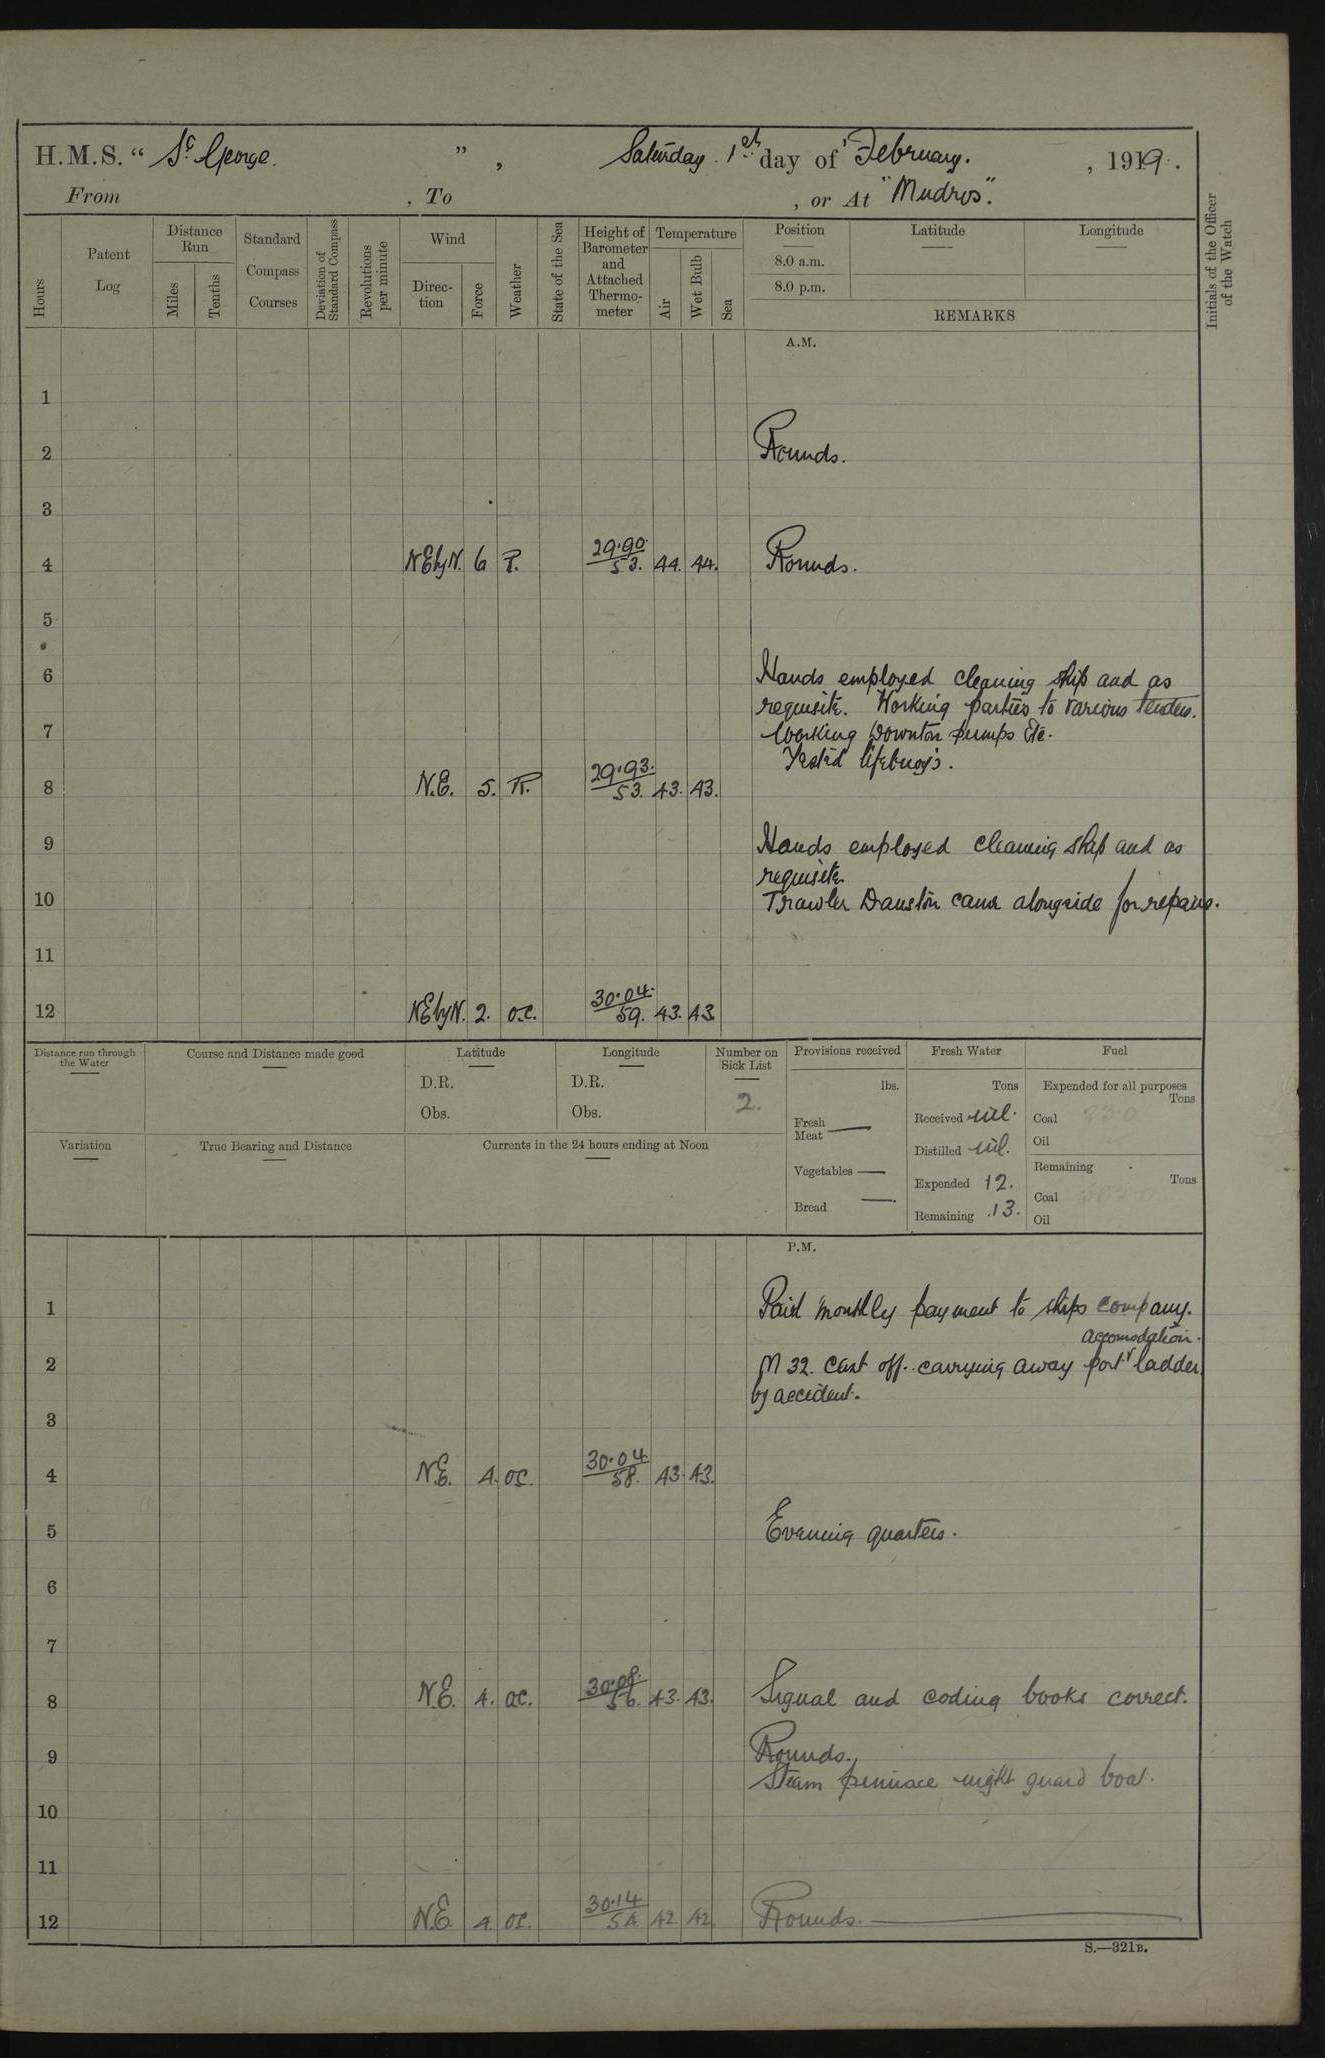 H.M.S. " St George. ", Saturday. 1st day of February. , 1919.
From , To , or At "Mudros".
Hours
Patent Log
Distance Run
Miles
Tenths
Standard Compass Courses
Deviation of Standard Compass
Revolutions per minute
Wind
Direction
Force
Weather
State of the Sea
Height of Barometer and Attached Thermometer
Temperature
Air
Wet Bulb
Sea
Position
Latitude
Longitude
8.0 a.m.
8.0 p.m.
REMARKS
Initials of the Officer of the Watch
A.M.
1
2 Rounds.
3
4 NEbyN. 6 R. 29.90. 53. 44. 44. Rounds.
5
6 Hands employed cleaning ship and as
requisite. Working parties to various tenders.
7 Working Downton pumps etc.
Tested lifebuoys.
8 N.E. 5. R. 29.93. 53. 43. 43.
9 Hands employed cleaning ship and as
requisite.
10 Trawler came alongside for repairs.
11
12 NEbyN. 2. o.c. 30.04. 59. 43. 43.
Distance run through the Water
Course and Distance made good
Latitude
D.R.
Obs.
Longitude
D.R.
Obs.
Number on Sick List
2.
Provisions received
lbs.
Fresh Meat —
Vegetables —
Bread —
Fresh Water
Tons
Received nil.
Distilled nil.
Expended 12.
Remaining 13.
Fuel
Expended for all purposes
Tons
Coal
Oil
Remaining
Tons
Coal
Oil
Variation
True Bearing and Distance
Currents in the 24 hours ending at Noon
P.M.
1 Paid monthly payment to ships company.
accomodation.
2 M 32. cast off. carrying away port ladder
by accident.
3
4 N.E. 4. oc. 30.04 58. 43. 43.
5 Evening quarters.
6
7
8 N.E. 4. oc. 30.08. 56. 43. 43. Signal and coding books correct.
9 Rounds.
Steam pinnace night guard boat.
10
11
12 N.E. 4. oc. 30.14 54. 42 42. Rounds.
S.—321B.